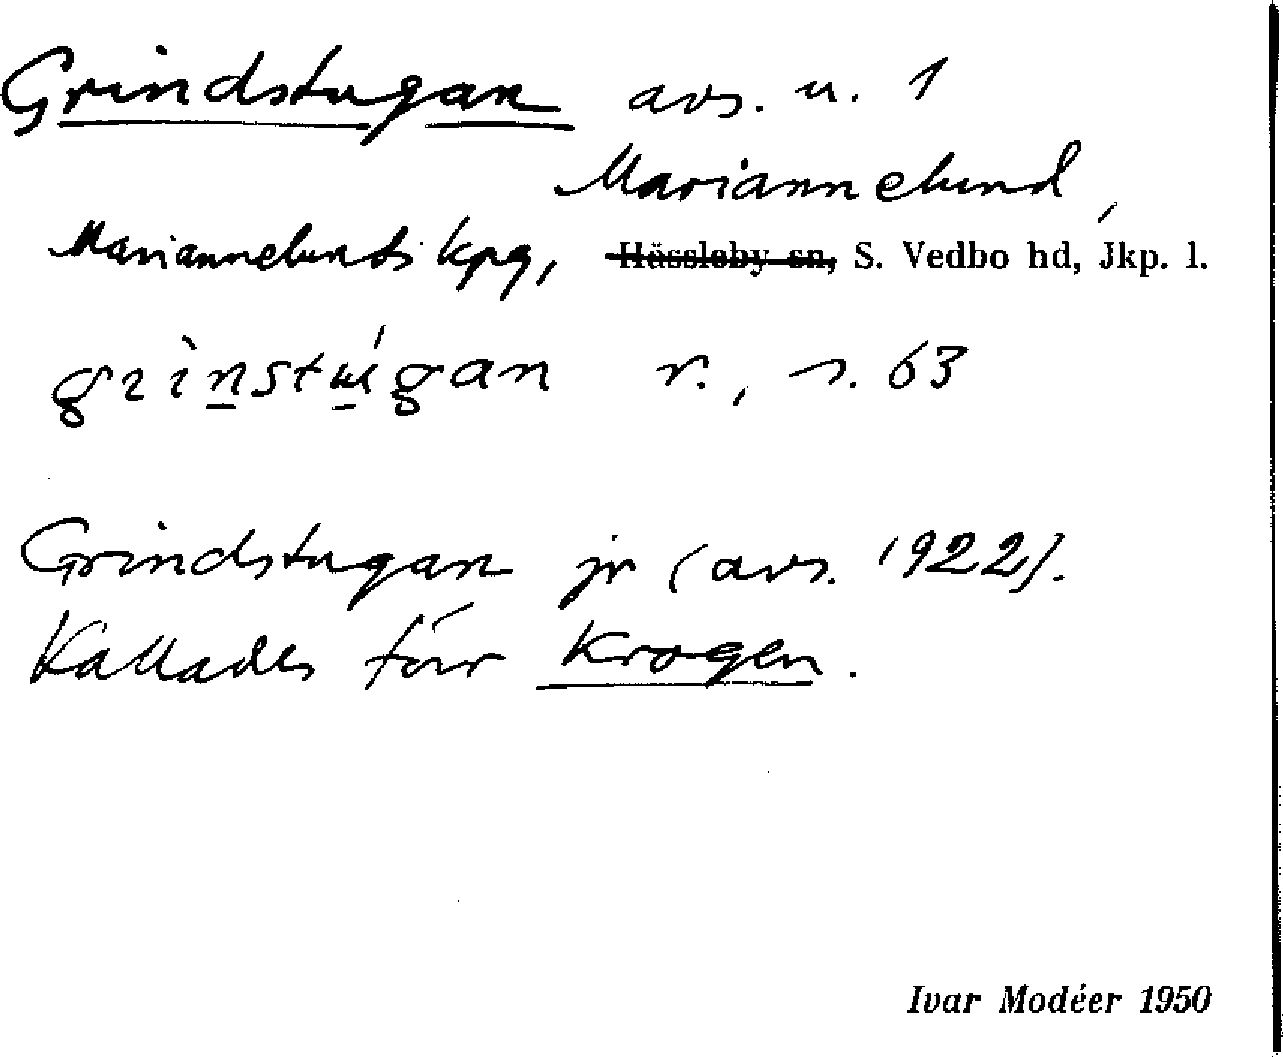 Grindstugan avs. u. 1
Mariannelund,
Mariannelunds kpg, Hässleby sn, S. Vedbo hd, Jkp. l.
grinstugan r., s. 63
Grindstugan jr (avs. 1922).
Kallades förr Krogen.
Ivar Modéer 1950